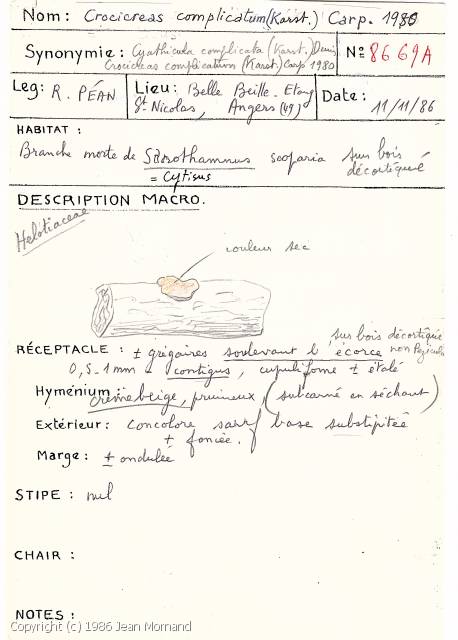 Nom: Crocicreas complicatum (Karst.) Carp. 1980
Synonymie: Cyathicula complicata (Karst.) Dennis
Crocicreas complicatum (Karst.) Carp 1980
N° 8669A
Leg: R. PÉAN
Lieu: Belle Beille. Etang
St Nicolas, Angers (49)
Date: 11/11/86
HABITAT :
Branche morte de Sarothamnus scoparia sur bois
décortiqué
= Cytisus
DESCRIPTION MACRO.
Helotiaceae
couleur sec
sur bois décortiqué
RÉCEPTACLE : ± grégaires soulevant l'écorce non
0,5-1mm contigus, cupuliforme ± étalé
Hyménium : crème beige, pruineux, (subcarné en séchant)
Extérieur: concolore sauf base substipitée
± foncée.
Marge: ± ondulée
STIPE : nul
CHAIR :
NOTES :
Copyright (c) 1986 Jean Mornand